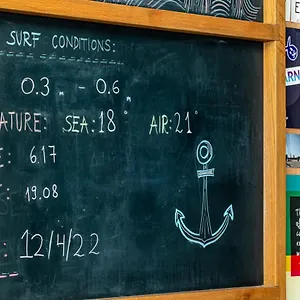 SURF CONDITIONS:
0.3 m - 0.6 m
ATURE: SEA: 18° AIR: 21°
: 6.17
: 19.08
: 12/4/22
ARN